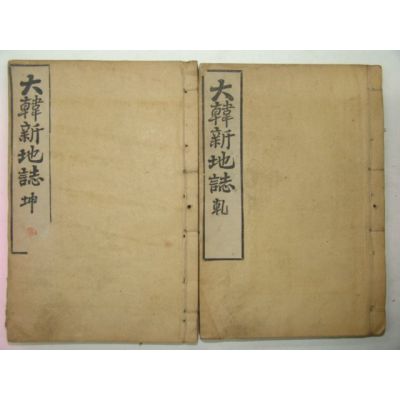 大韓新地誌 坤
大韓新地誌 乾